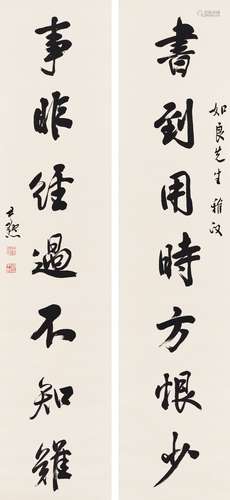 如良先生雅
書到用時方恨少
事非經過不知難
尹默